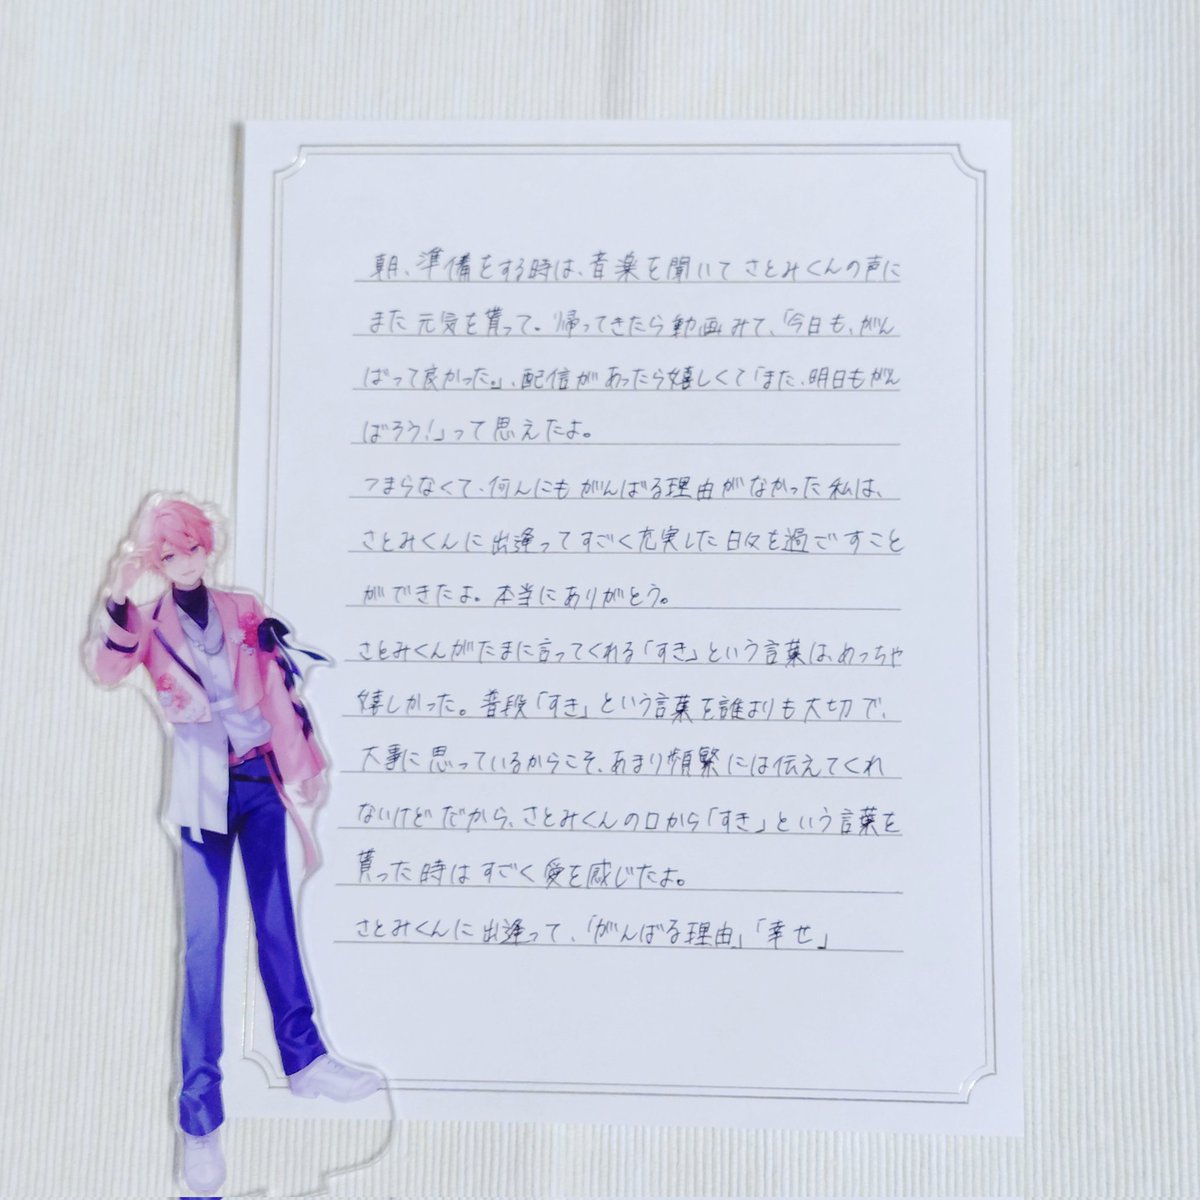 朝、準備をする時は、音楽を聞いてさとみくんの声に
また元気を貰って。帰ってきたら動画みて、「今日も、がん
ばって良かった。」、配信があったら嬉しくて「また、明日もがん
ばろう!」って思えたよ。
つまらなくて、何にもがんばる理由がなかった私は、
さとみくんに出逢ってすごく充実した日々を過ごすこと
ができたよ。本当にありがとう。
さとみくんがたまに言ってくれる「すき」という言葉は、めっちゃ
嬉しかった。普段「すき」という言葉を誰よりも大切で、
大事に思っているからこそ、あまり頻繁には伝えてくれ
ないけどだから、さとみくんの口から「すき」という言葉を
貰った時はすごく愛を感じたよ。
さとみくんに出逢って、「がんばる理由」「幸せ」